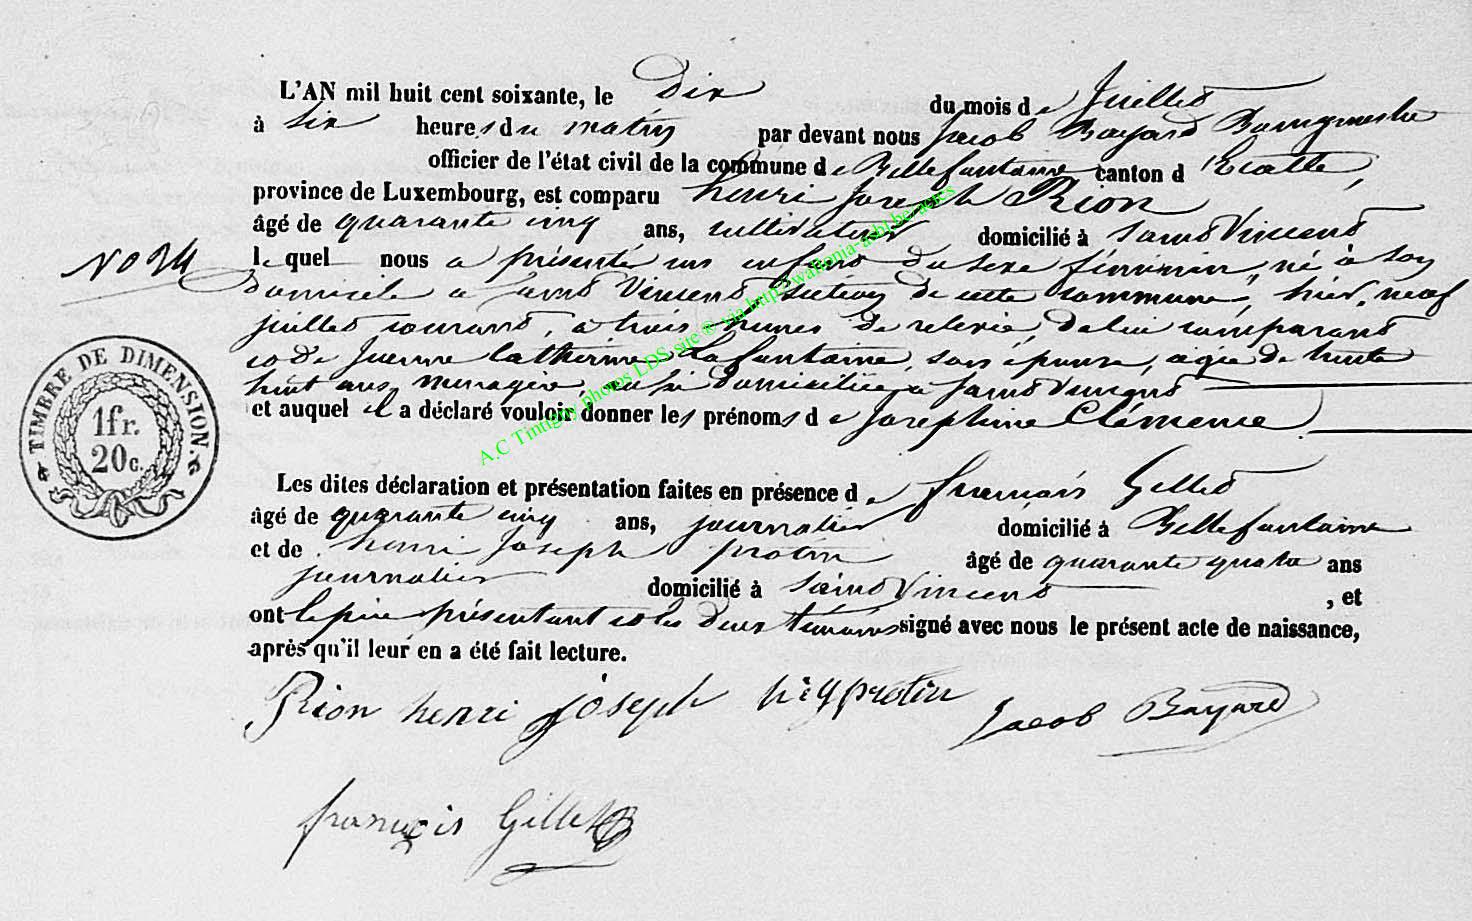 L'AN mil huit cent soixante, le dix du mois de Juillet
à six heures du matin par devant nous Jacob Bayard Bourgmestre
officier de l'état civil de la commune de Bellefontaine canton d'Etalle,
province de Luxembourg, est comparu henri Joseph Rion
âgé de quarante cinq ans, cultivateur domicilié à Saint Vincent
No 24
le quel nous a présenté un enfant du sexe féminin, né à son
domicile a Saint Vincent Section de cette commune, hier, neuf
juillet courant, a trois heures de relevée, de lui comparant
et de Jeanne Catherine Lafontaine, son épouse, agée de trente
huit ans, menagère, aussi domiciliée a Saint Vincent
et auquel il a déclaré vouloir donner les prénoms de Josephine Clémence
TIMBRE DE DIMENSION.
1 fr.
20 c.
Les dites déclaration et présentation faites en présence de françois Gillet
âgé de quarante cinq ans, journalier domicilié à Bellefontaine
et de henri Joseph protin âgé de quarante quatre ans
journalier domicilié à Saint Vincent , et
ont le père présentant et les deux témoins signé avec nous le présent acte de naissance,
après qu'il leur en a été fait lecture.
Rion henri joseph h j protin Jacob Bayard
françois Gillet
A.C Tintigny photos LDS site ® via http://wallonia-asbl.be/actes